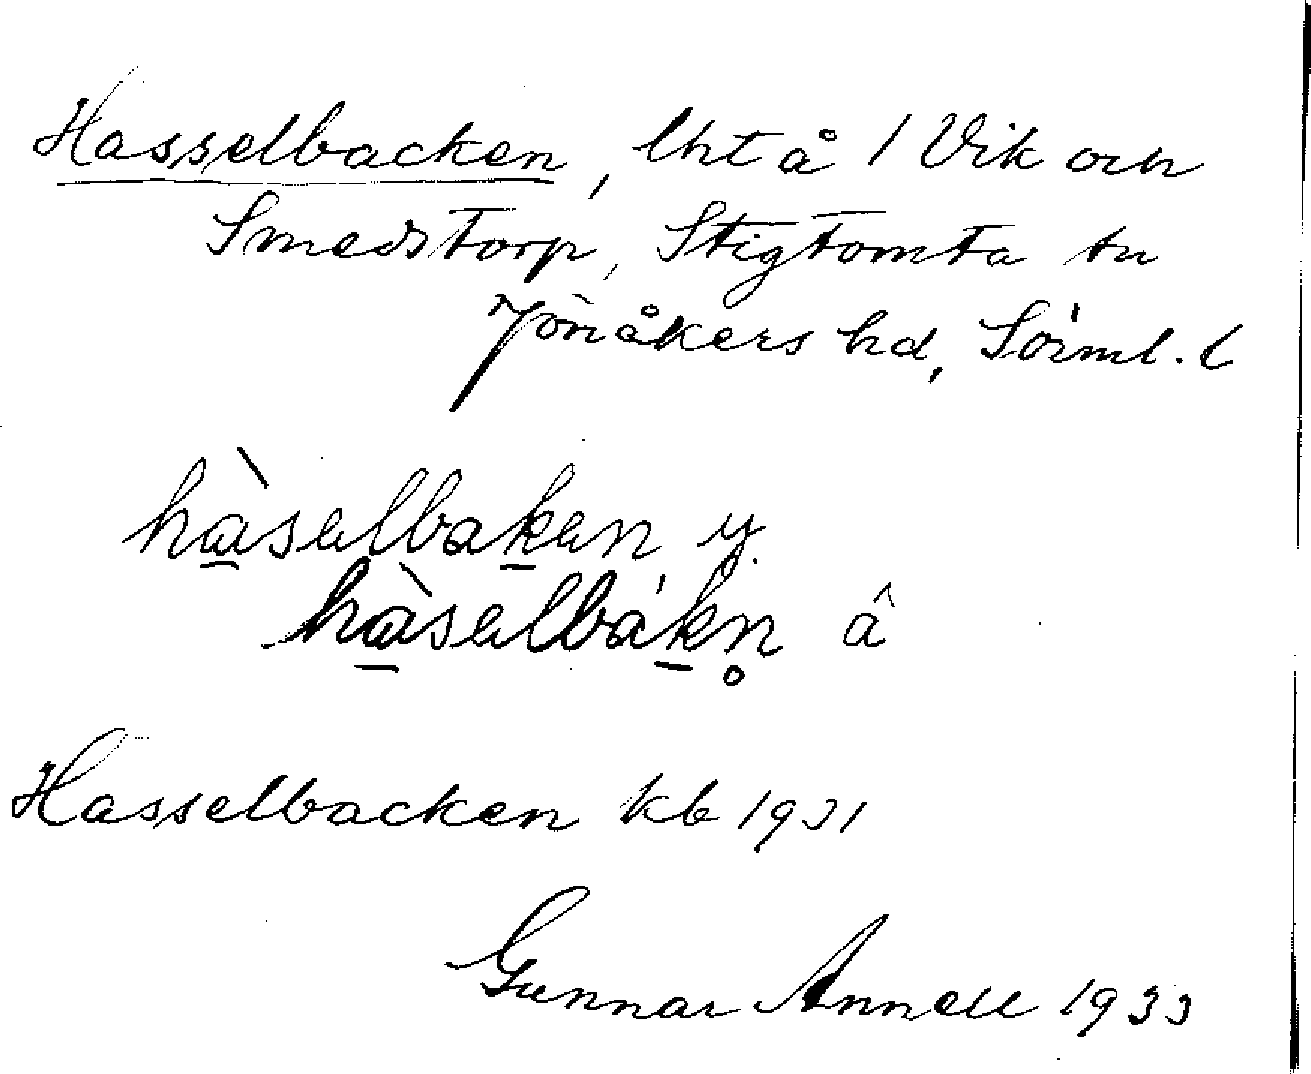 Hasselbacken, lht å 1 Vik och
Smedstorp, Stigtomta sn
Jönåkers hd, Sörml. l
hàselbaken y.
hàselbákn̥ â
Hasselbacken kb 1931
Gunnar Annell 1933